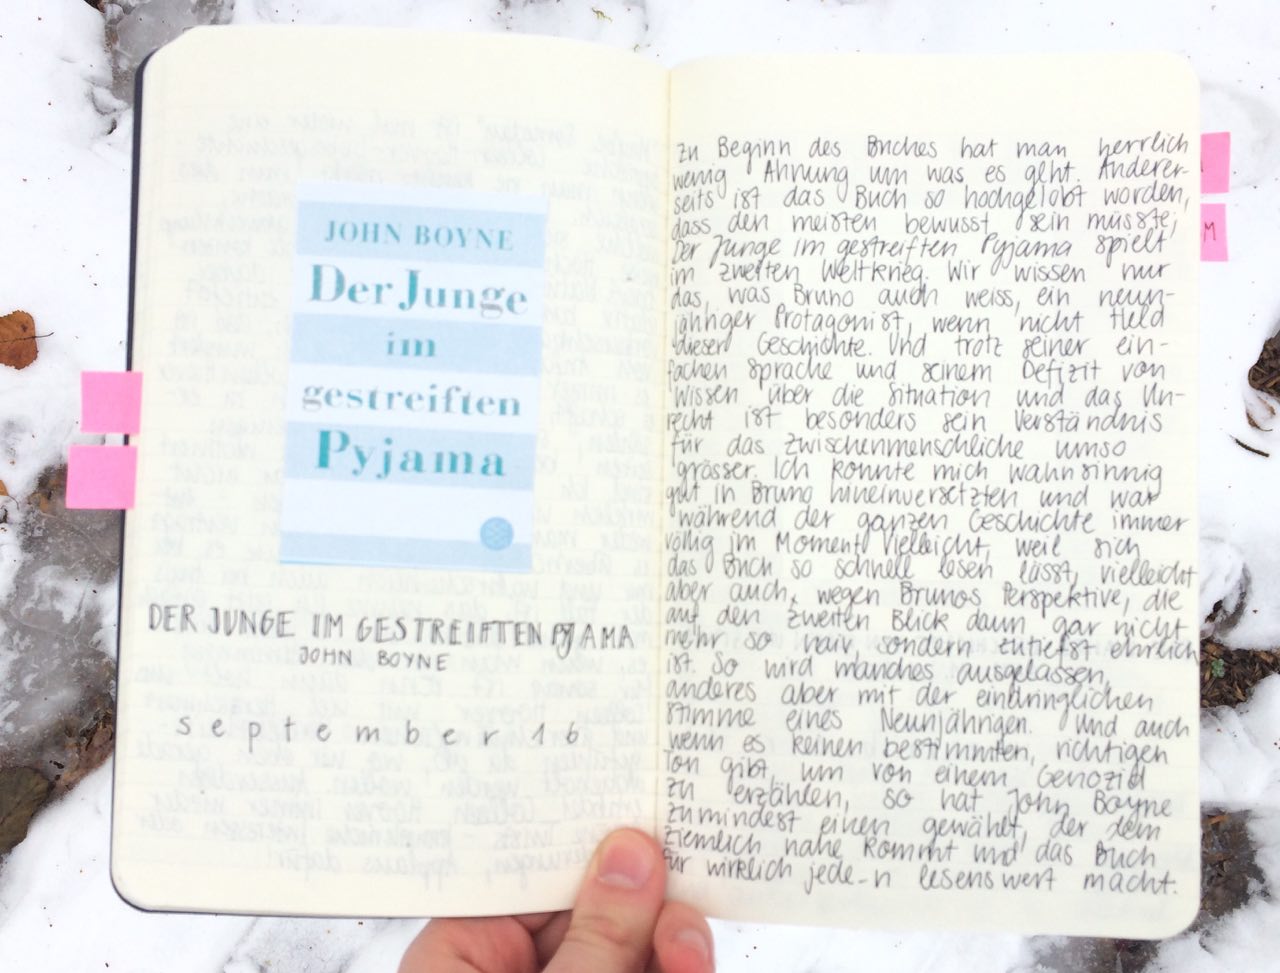 JOHN BOYNE
Der Junge
im
gestreiften
Pyjama
DER JUNGE IM GESTREIFTEN PYJAMA
JOHN BOYNE
september 16
zu Beginn des Buches hat man herrlich
wenig Ahnung um was es geht. Anderer-
seits ist das Buch so hochgelobt worden,
dass den meisten bewusst sein müsste,
Der Junge im gestreiften Pyjama spielt
im zweiten Weltkrieg. Wir wissen nur
das, was Bruno auch weiss, ein neun-
jähriger Protagonist, wenn nicht Held
dieser Geschichte. Und trotz seiner ein-
fachen Sprache und seinem Defizit von
Wissen über die Situation und das Un-
recht ist besonders sein Verständnis
für das Zwischenmenschliche umso
grösser. Ich konnte mich wahnsinnig
gut in Bruno hineinversetzten und war
während der ganzen Geschichte immer
völlig im Moment. Vielleicht, weil sich
das Buch so schnell lesen lässt, vielleicht
aber auch, wegen Brunos Perspektive, die
auf den zweiten Blick dann gar nicht
mehr so naiv, sondern zutiefst ehrlich
ist. So wird manches ausgelassen,
anderes aber mit der eindringlichen
Stimme eines Neunjährigen. Und auch
wenn es keinen bestimmten, richtigen
Ton gibt, um von einem Genozid
zu erzählen, so hat John Boyne
zumindest einen gewählt, der dem
ziemlich nahe kommt und das Buch
für wirklich jede_n lesenswert macht.
M